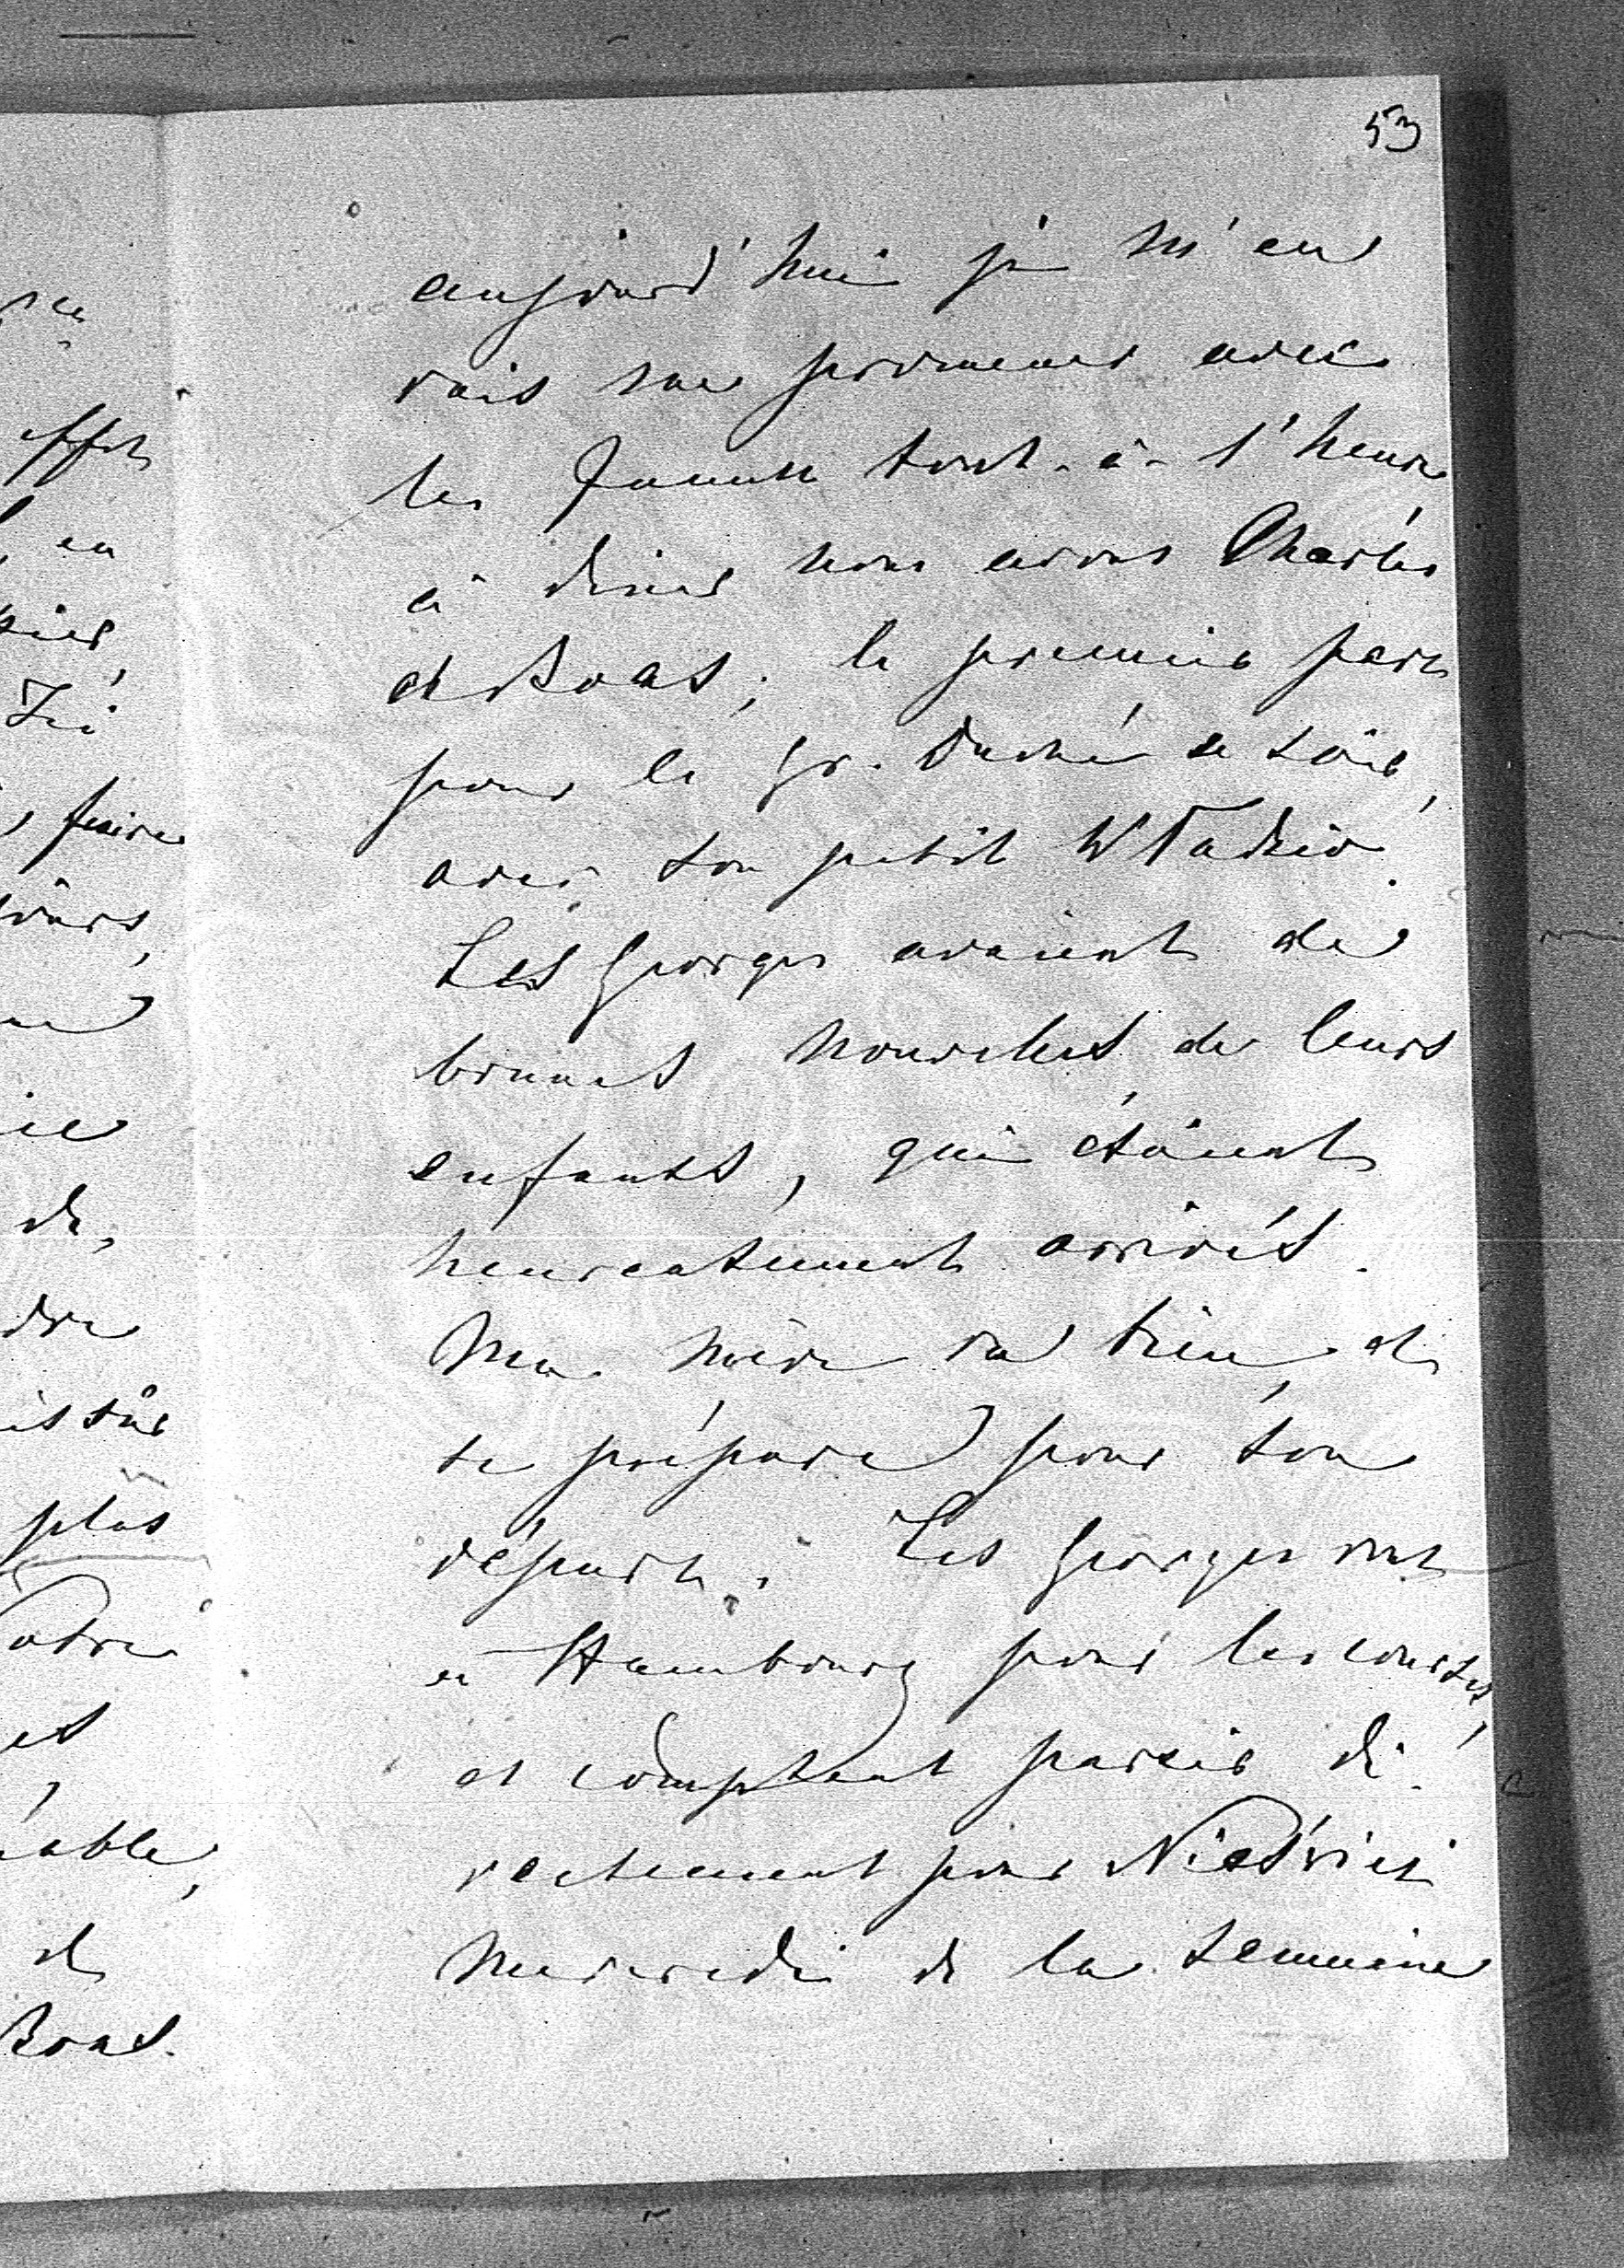 53
aujourd'hui je m'en
vais me promener avec
les tout-à-l'heure
à diner nous avons Charles
et Boas; le premier part
pour le gr. Duché ce soir,
avec son petit Władzio.
Les Georges avaient de
bonnes nouvelles de leurs
enfants, qui étaient
heureusement arrivés.
Ma mère va bien, et
se prépare pour son
départ. Les Georges vont
à Hambourg pour les courses,
et comptent partir di-
rectement pour Nieśwież
Mercredi de la semaine
effet
en
faire
de,
plus
et
Boas.